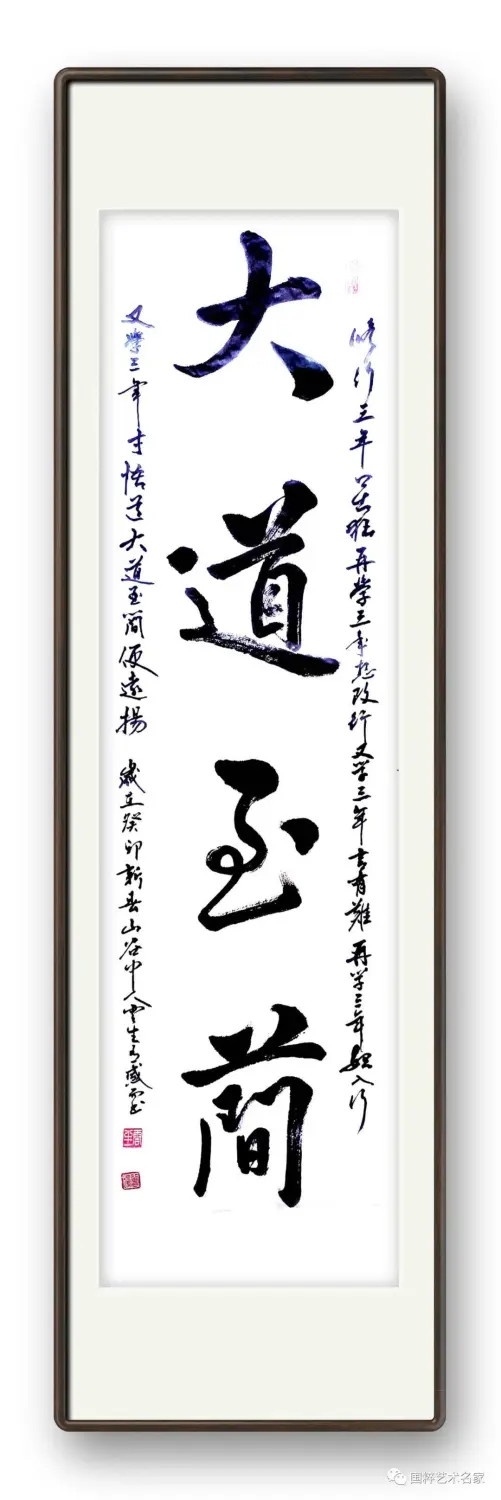 修行三年口出狂再學三年想改行又学三年有難再学三年入行
大道至簡
又學三年才悟道大道至簡便遠揚 歲在癸卯新春山谷中人雲生有感而書
国粹艺术名家